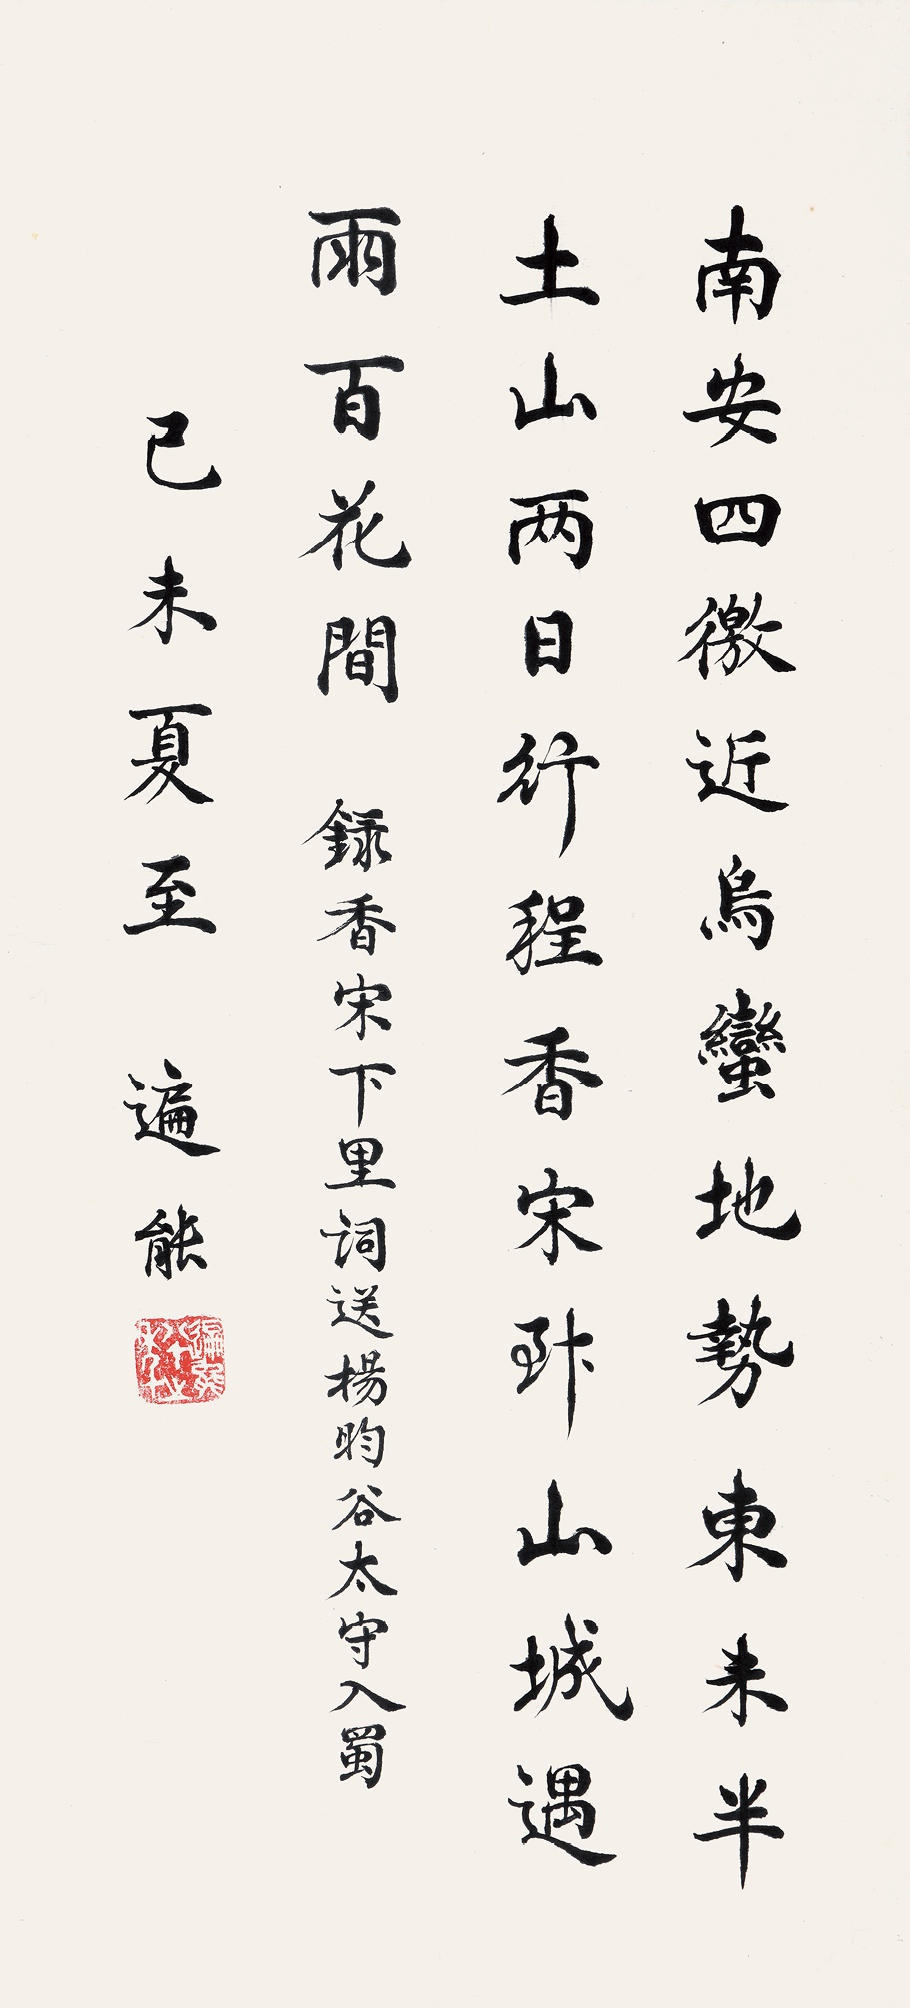 南安四徼近烏蠻地勢東未半
土山两日行程香宋卧山城遇
雨百花間 録香宋下里詞送楊昀谷太守入蜀
己未夏至 遍能